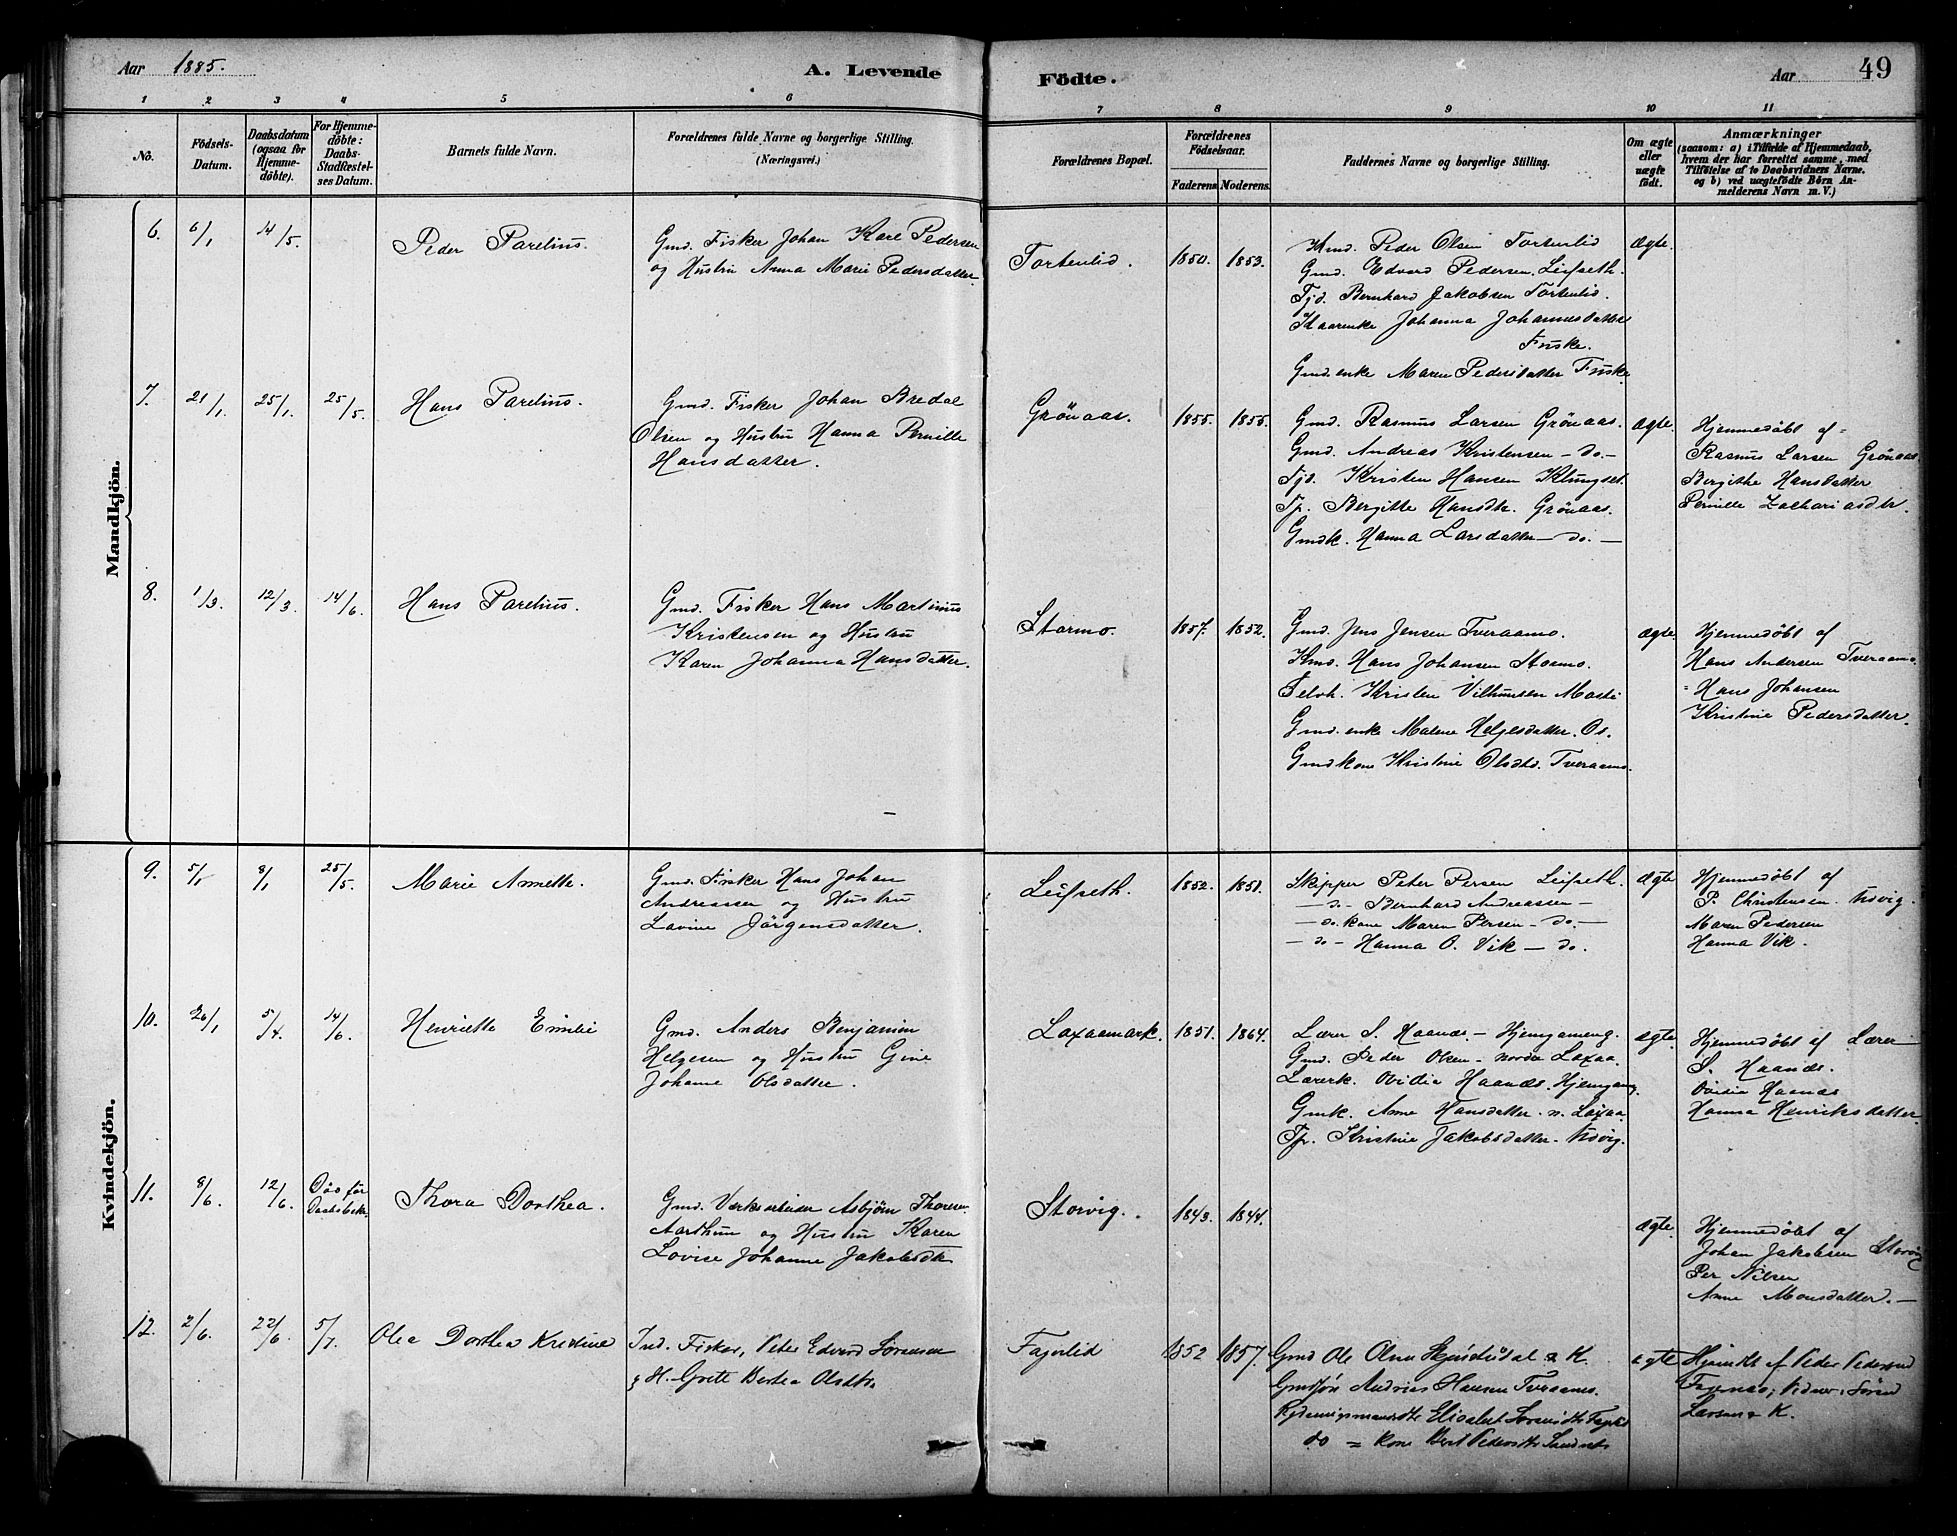 Aar 1885.
A. Levende
Födte.
Aar
49
1 2 3 4 5 6 7 8 9 10 11
No.
Födsels-
Datum.
Daabsdatum
(ogsaa for
Hjemme-
döbte).
For Hjemme-
döbte:
Daabs-
Stadfæstel-
ses Datum.
Barnets fulde Navn.
Forældrenes fulde Navne og borgerlige Stilling.
(Næringsvei.)
Forældrenes Bopæl.
Forældrenes
Födselsaar.
Faderens. Moderens.
Faddernes Navne og borgerlige Stilling.
Om ægte
eller
uægte
født.
Anmærkninger
(saasom: a) i Tilfælde af Hjemmedaab,
hvem der har forrettet samme, med
Tilföielse af to Daabsvidners Navne,
og b) ved uægtefödte Börn An-
melderens Navn m. V.)
Mandkjön.
6. 6/1 14/5.
Peder Parelius.
Gmd. Fisker Johan Karl Pedersen
og Hustru Anna Marie Pedersdatter.
Tortenlid. 1850. 1853.
Kmd. Peder Olsen Tortenlid
Gmd. Edvard Pedersen Leifseth.
Tjd. Bernhard Jakobsen Tortenlid.
Kaarenke Johanna Johannesdatter
Fuske.
Gmd. enke Maren Pedersdatter Fuske
ægte.
7. 21/1. 25/1. 25/5.
Hans Parelius.
Gmd. Fisker Johan Bredal
Olsen og Hustru Hanna Pernille
Hansdatter.
Grönaas. 1855. 1855.
Gmd. Rasmus Larsen Grönaas.
Gmd. Andreas Kristensen - do. -
Tjd. Kristen Hansen Klungset.
Tp. Bergitte Hansdtr. Grönaas.
Gmdk. Hanna Larsdatter - do. -
ægte.
Hjemmedöbt af
Rasmus Larsen Grönaas
Bergithe Hansdatter
Pernille Zachariasdtr.
8. 1/3. 12/3 14/6
Hans Parelius.
Gmd. Fisker Hans Martinus
Kristensen og Hustru
Karen Johanna Hansdatter.
Stormo. 1857. 1852.
Gmd. Jens Jensen Tveraamo.
Kmd. Hans Johansen Stormo.
Selvh. Kristen Vilhumsen Mosti
Gmd. enke Malene Helgesdatter. Os.
Gmdkone Kristine Olsdtr. Tveraamo.
ægte
Hjemmedöbt af
Hans Andersen Tveraamo
Hans Johansen
Kristine Pedersdatter.
Kvindekjön.
9. 5/1 8/1 25/5.
Marie Annette.
Gmd. Fisker Hans Johan
Andreassen og Hustru
Lavine Jörgensdatter.
Leifseth. 1852. 1851.
Skipper Peter Persen Leifseth.
- do - Bernhard Andreassen -
- do. kone Maren Persen - do -
- do - Hanna O. Vik - do.
ægte
Hjemmedöbt af
P. Christensen. Udvig.
Maren Pedersen
Hanna Vik.
10. 26/1 5/4. 14/6.
Henriette Emilie
Gmd. Anders Benjamin
Helgesen og Hustru Gine
Johanne Olsdatter.
Laxaamark. 1851. 1864.
Lærer S. Haanæs. - Hjemgameng.
Gmd. Peder Olsen - nordre Laxaa
Lærerk. Ovidia Haanæs. Hjemgang.
Gmk. Anne Hansdatter. n. Laxaa
Tp. Kristine Jakobsdatter. Udvig.
ægte.
Hjemmedöbt af Lærer
S. Haanæs.
Ovidia Haanæs
Hanna Henriksdatter.
11. 8/6. 12/6. Död för
Daabsbekr.
Thora Dorthea.
Gmd. Værksarbeider Asbjörn Thoresen
Aarthun og Hustru Karen
Lovise Johanne Jakobsdtr
Storvig. 1843. 1844.
ægte.
Hjemmedöbt af
Johan Jakobsen Storvig
Per Nilsen
Anne Monsdatter. -
12. 2/6. 22/6. 5/7.
Olea Dorthea Kristine
Ind. Fisker, Peter Edvard Sörensen
& H. Grete Berthea Olsdtr.
Fagerlid 1852 1857.
Gmd Ole Olsen Skjerstudal & K.
Gmdsøn Andreas Hansen Tveraamo.
Elisabet Sörensdtr. Fagerlid
do = kone Berit Pedersdtr
ægte
Hjemdt af Peder Pedersen
Fagernæs; Vidner: Sören
Larsen & K.